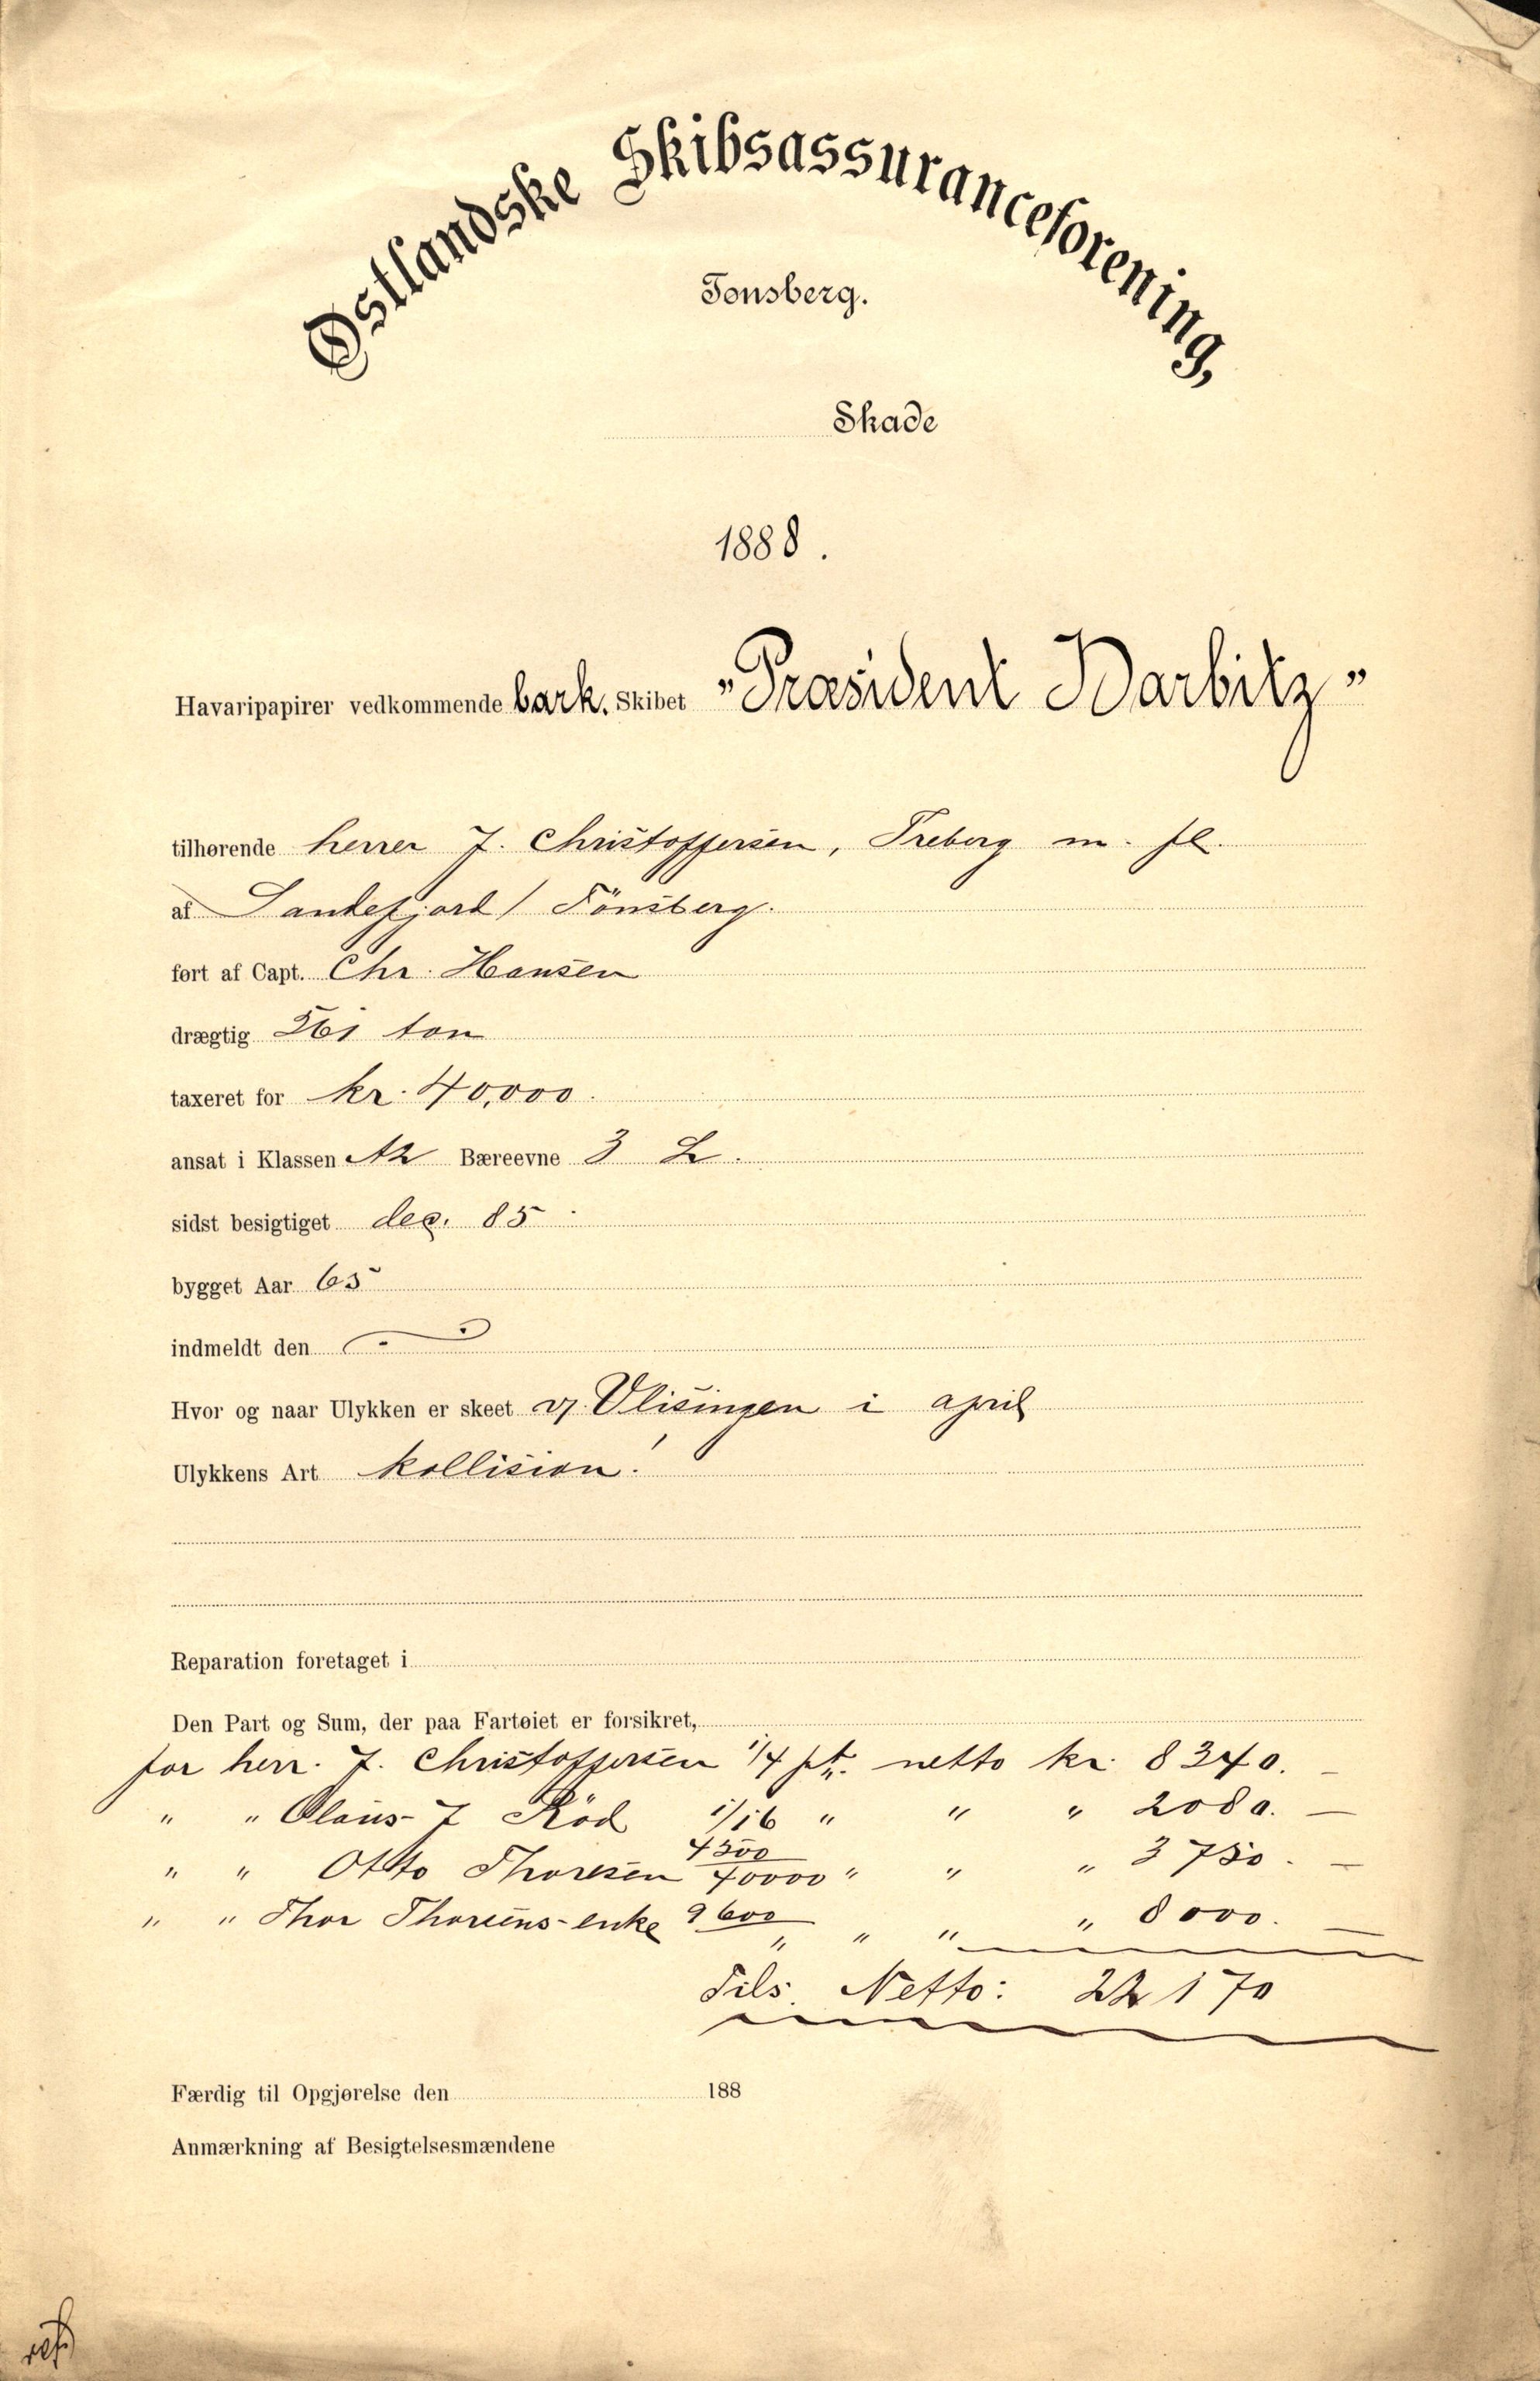 Østlandske Skibsassuranceforening,
Tønsberg.
Skade
1888.
Havaripapirer vedkommende bark. Skibet "Præsident Harbitz"
tilhørende herrer J. Christoffersen, Freberg m. fl.
af Sandefjord / Tönsberg.
ført af Capt. Chr. Hansen
drægtig 561 ton
taxeret for kr. 40,000.
ansat i Klassen A2 Bæreevne 3 L.
sidst besigtiget dec. 85
bygget Aar 65
indmeldt den
Hvor og naar Ulykken er skeet v/ Vlisingen i april
Ulykkens Art kollision.
Reparation foretaget i
Den Part og Sum, der paa Fartøiet er forsikret,
for herr. J. Christoffersen 1/4 pt. netto kr. 8340. —
" " Olaus J Röd 1/16 " " " 2080. —
" " Otto Thoresen 4500/40000 " " " 3750. —
" " Thor Thoresens enke 9600/" " " " 8000. —
Tils. Netto: 22170
Færdig til Opgjørelse den 188
Anmærkning af Besigtelsesmændene